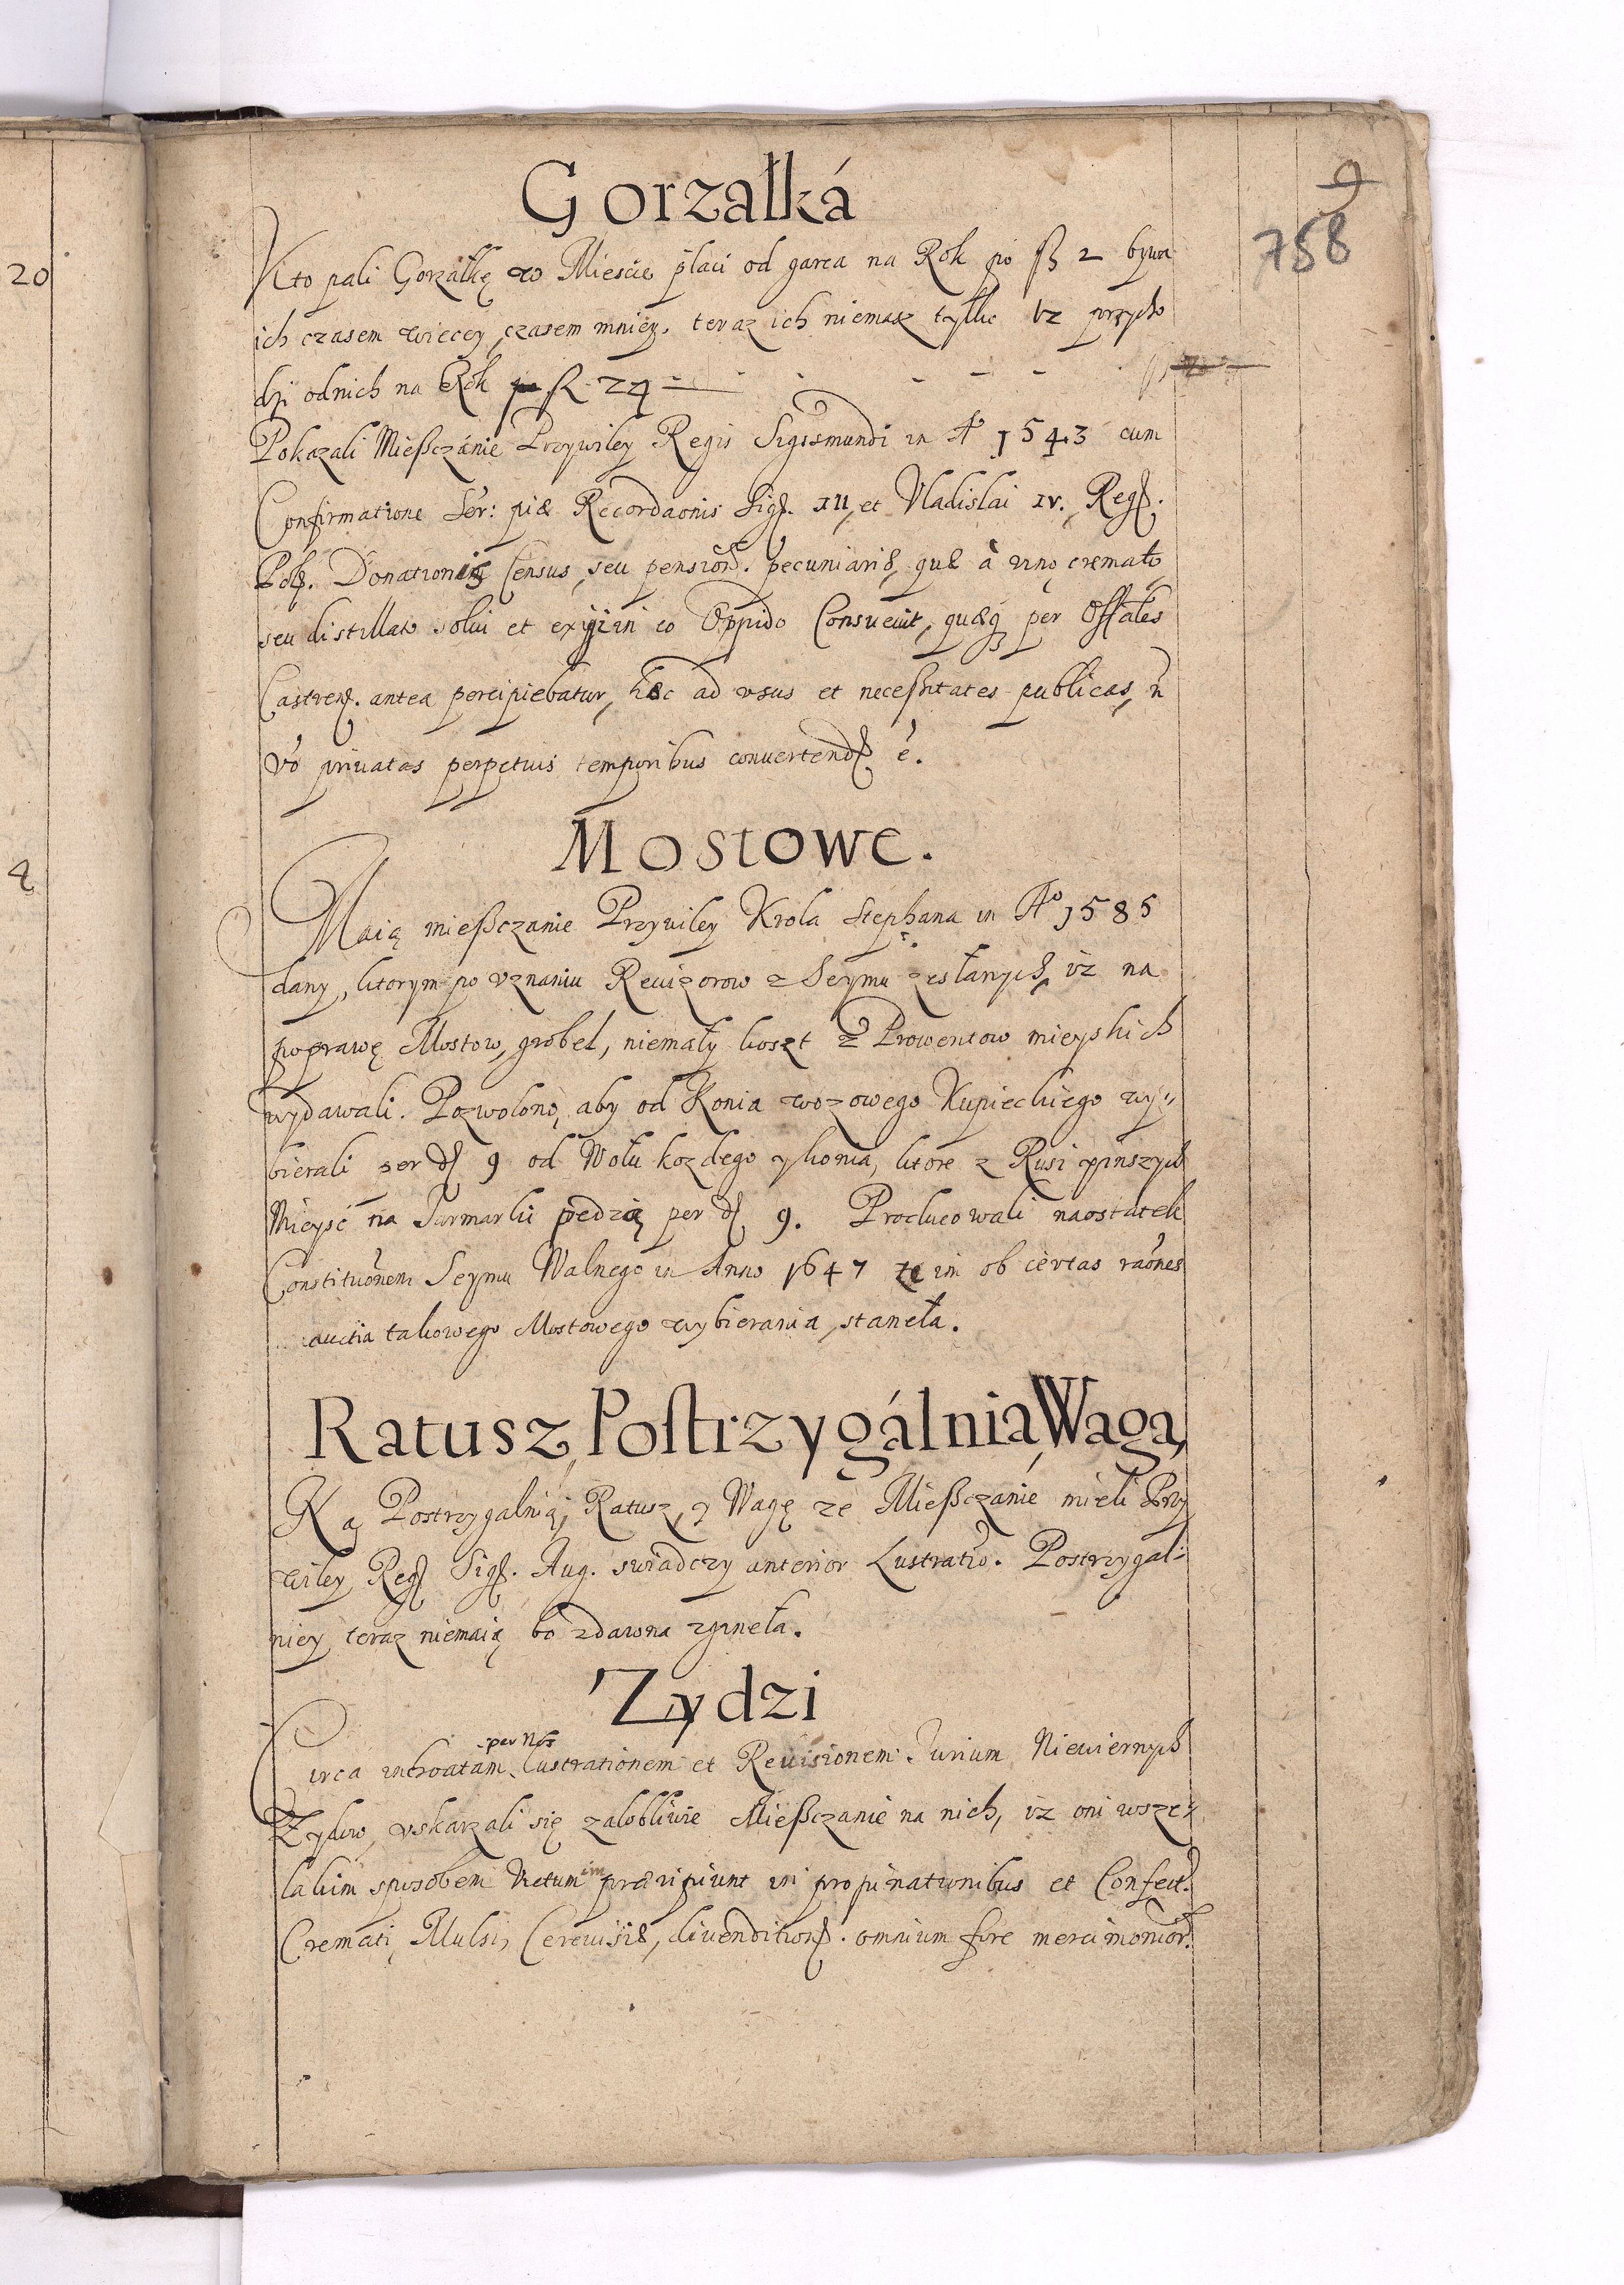 20
9
758
Gorzałká
Kto pali Gorzałkę w Mieście płaci od garca na Rok po ß 2 bywa
ich czasem więcey, czasem mniey, teraz ich niemasz tylko uz przycho
dzi odnich na Rok 24
Pokazali Mießczánie Przywiley Regis Sigismundi in Aº 1543 cum
Confirmatione Ser: piæ Recordaonis Sig. III, et Vladislai IV. Reg.
Pol. Donationis Census, seu pension. pecuniariæ, quæ à vino cremato
seu distillato solui et exigi in eo Oppido Consueuit, quæq per Offales
Castren. antea percipiebatur, hæc ad vsus et necessitates publicas, ñ
vó priuatas perpetuis temporibus conuertend é.
Mostowe.
Maią mießczanie Przywiley Krola Stephana in Aº 1585
dany, ktorym po vznaniu Reuizorow z Seymu zesłanych, iż na
poprawę Mostow, grobel, niemały koszt z Prowentow mieyskich
wydawali. Pozwolono, aby od Konia wozowego Kupieckiego wy
bierali per d 9 od Wołu kozdego y konia, ktore z Rusi y inszych
Mieysć na Jarmarki pędzią per d 9. Producowali naostatek
Constituónem Seymu Walnego in Anno 1647 ze im ob certas raónes
auctia takowego Mostowego wybierania, staneła.
Ratusz, Poſtrzygálnia, Waga,
Ką Postrzygalnią, Ratusz, y Wagę ze Mießczanie mieli Przy
wiley Reg Sig. Aug. swiadczy anterior Lustratio. Postrzygal
niey teraz niemaią bo zdawna zgineła.
Zydzi
per Nos
Circa inchoatam Lustrationem et Reuisionem Jurium Niewiernych
Zydow, vskarzali się załobliwie Mießczanie na nich, iż oni wsze
lakim sposobem Victum im præripiunt in propinationibus et Confect.
Cremati, Mulsi, Cereuisiæ, diuendition. omnium fere mercimonior.